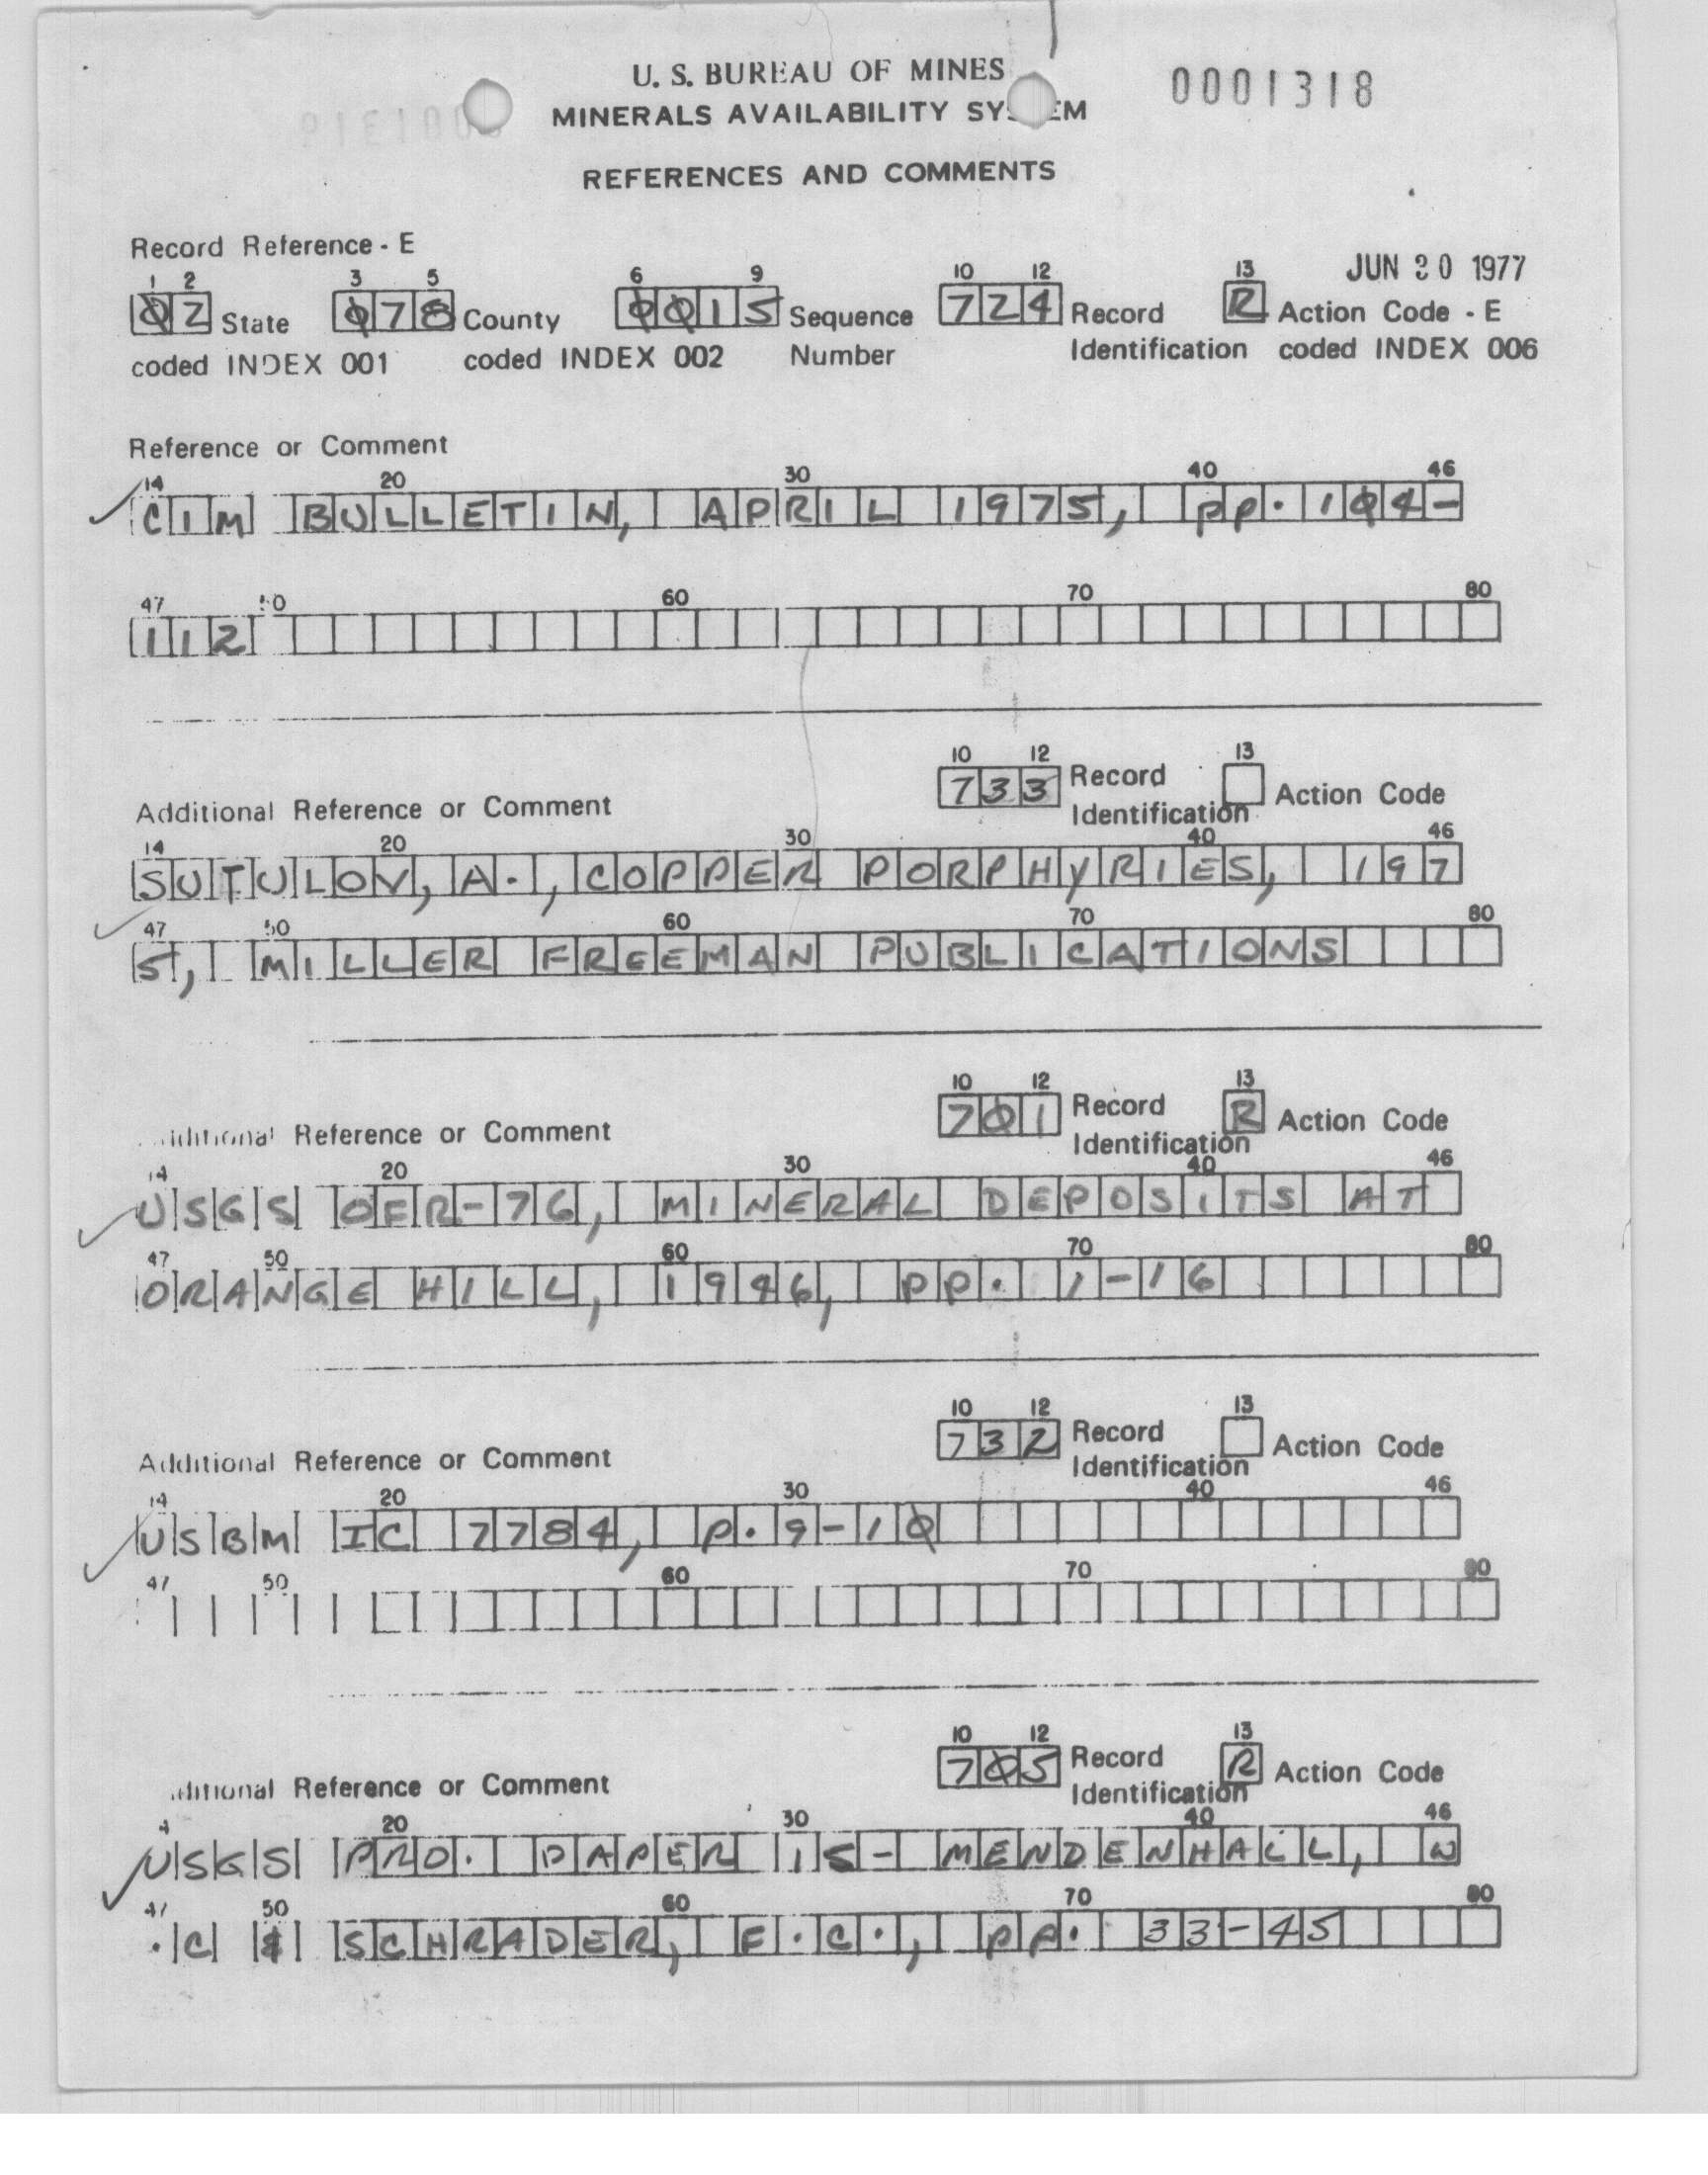 U. S. BUREAU OF MINES
0001318
MINERALS AVAILABILITY SYSTEM
REFERENCES AND COMMENTS
Record Reference - E
JUN 20 1977
1 2 3 5 6 9 10 12 13
02 State 078 County 0015 Sequence 724 Record R Action Code - E
coded INDEX 001 coded INDEX 002 Number Identification coded INDEX 006
Reference or Comment
14 20 30 40 46
CIM BULLETIN, APRIL 1975, pp. 104-
47 50 60 70 80
112
10 12 13
733 Record Action Code
Additional Reference or Comment Identification
14 20 30 40 46
SUTULOV, A., COPPER PORPHYRIES, 197
47 50 60 70 80
5, MILLER FREEMAN PUBLICATIONS
10 12 13
701 Record R Action Code
Additional Reference or Comment Identification
14 20 30 40 46
USGS OFR-76, MINERAL DEPOSITS AT
47 50 60 70 80
ORANGE HILL, 1946, PP. 1-16
10 12 13
732 Record Action Code
Additional Reference or Comment Identification
14 20 30 40 46
USBM IC 7784, P. 9-10
47 50 60 70 80
10 12 13
705 Record R Action Code
Additional Reference or Comment Identification
14 20 30 40 46
USGS PRO. PAPER 15- MENDENHALL, W
47 50 60 70 80
.C & SCHRADER, F.C., pp. 33-45